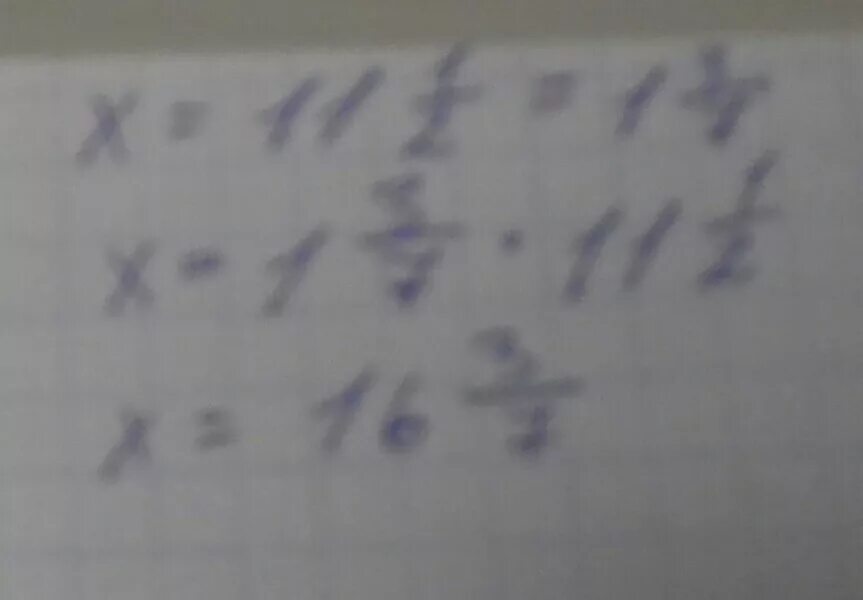 x = 11 1/2 = 1 3/7
x = 1 3/7 · 11 1/2
x = 16 3/7